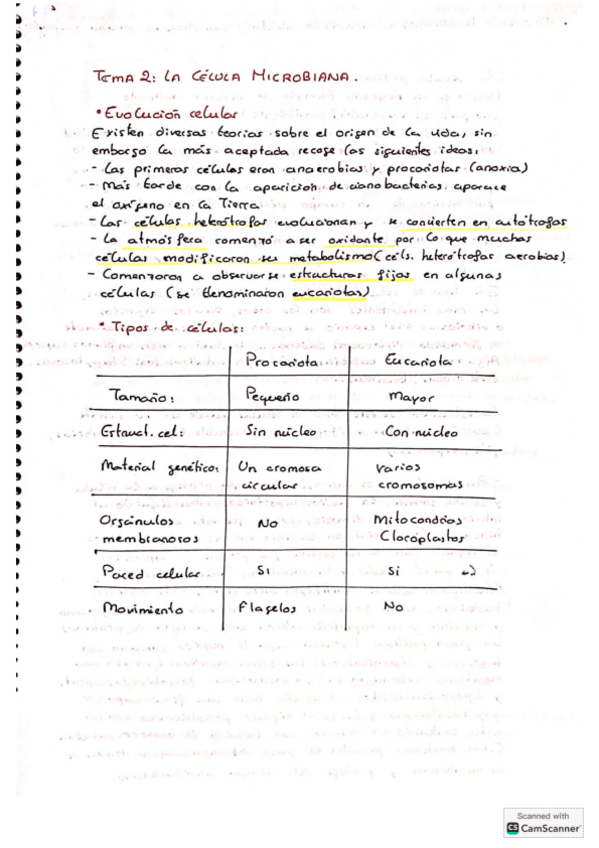 TEMA 2: LA CÉLULA MICROBIANA.
• Evolución celular
Existen diversas teorías sobre el origen de la vida, sin
embargo la más aceptada recoge las siguientes ideas:
- Las primeras células eran anaerobias y procariotas (anoxia)
- Más tarde con la aparición de cianobacterias aparece
el oxígeno en la Tierra
- Las células heterótrofas evolucionan y se convierten en autótrofas
- La atmósfera comenzó a ser oxidante por lo que muchas
células modificaron su metabolismo (céls. heterótrofas aerobias)
- Comenzaron a observarse estructuras fijas en algunas
células (se denominaron eucariotas)
• Tipos de células:
Procariota Eucariota
Tamaño: Pequeño Mayor
Estruct. cel: Sin núcleo Con núcleo
Material genético: Un cromoso varios
circular cromosomas
Orgánulos No Mitocondrias
membranosos Cloroplastos
Pared celular Si Si
Movimiento Flagelos No
Scanned with
CS CamScanner